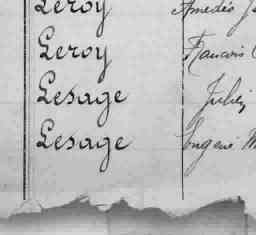 Leroy Amédée
Leroy Francois
Lesage Julien
Lesage Eugène M